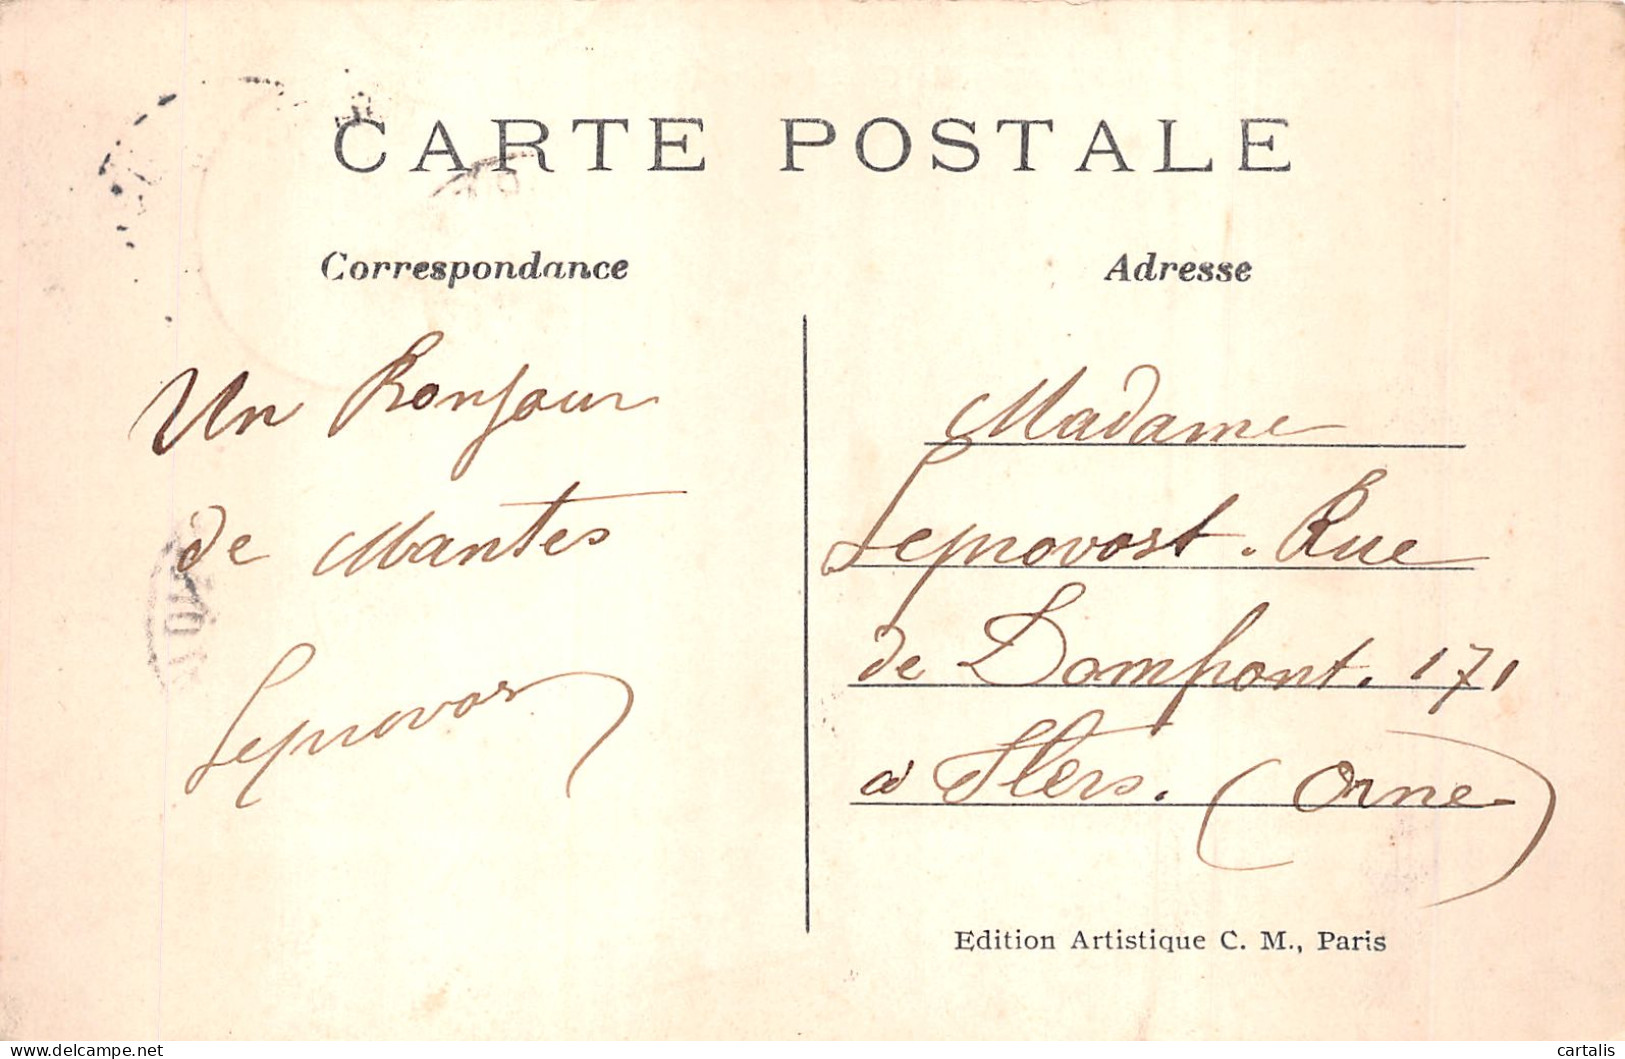 CARTE POSTALE
Correspondance
Adresse
Un Bonjour
de Mantes
Leprovost
Madame
Leprovost. Rue
de Domfront. 171
à Flers. (Orne)
Edition Artistique C. M., Paris
delcampe.net
cartalis